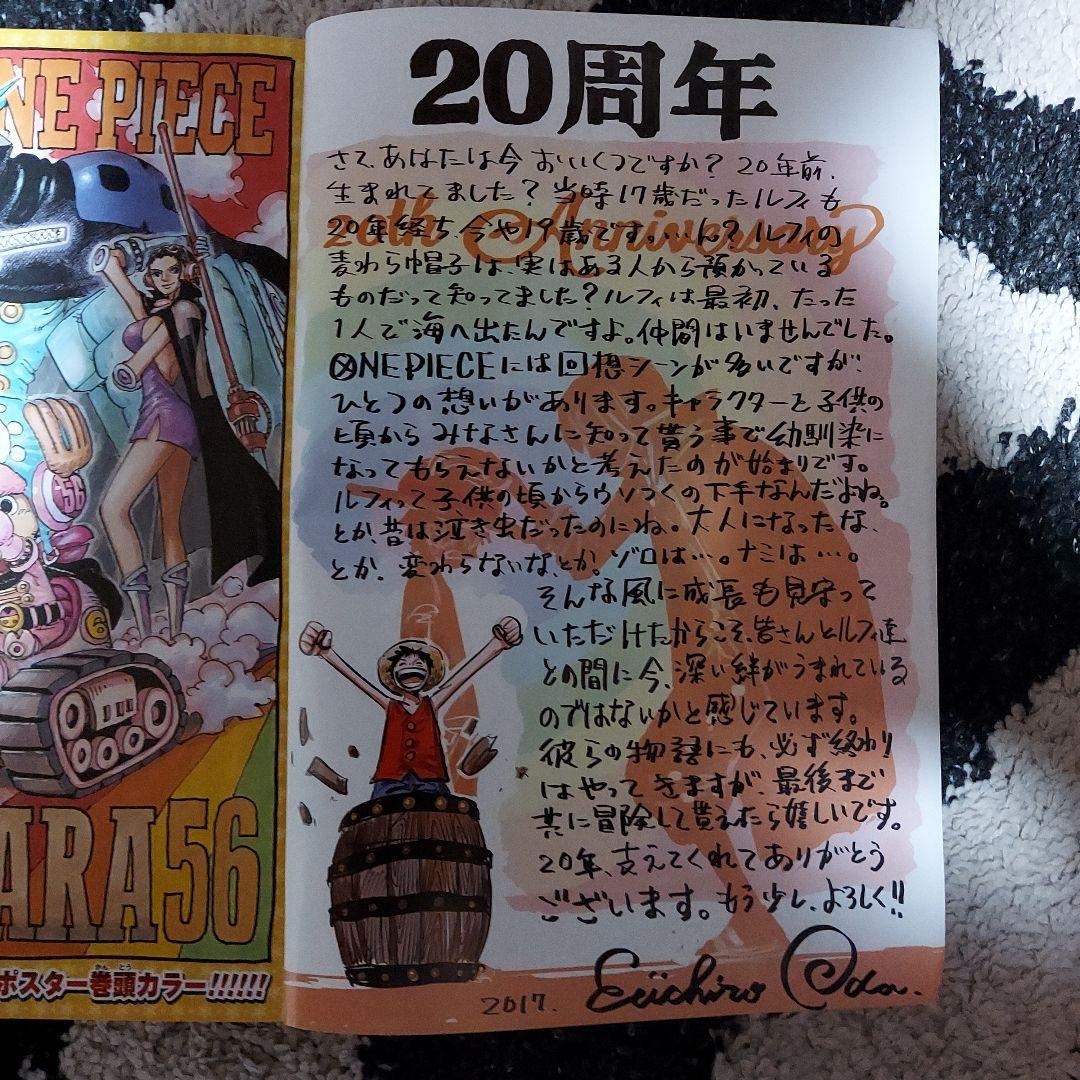 NE PIECE
56
6
ARA56
ポスター巻頭カラー!!!!!!
かん とう
20周年
20th Anniversary
さて、あなたは今 おいくつですか？ 20年前、
生まれてました？ 当時17歳だったルフィも
20年経ち 今や19歳です。…ん？ ルフィの
麦わら帽子は、実はある人から預かっている
ものだって知ってました？ルフィは最初、たった
1人で海へ出たんですよ。仲間はいませんでした。
ONEPIECEには回想シーンが多いですが、
ひとつの想いがあります。キャラクターを子供の
頃からみなさんに知って貰う事で幼馴染に
なってもらえないかと考えたのが始まりです。
ルフィって子供の頃からウソつくの下手なんだよね。
とか、昔は泣き虫だったのにね。大人になったな、
とか。変わらないな、とか。ゾロは…。ナミは…。
そんな風に成長も見守って
いただけたからこそ、皆さんとルフィ達
との間に今、深い絆がうまれている
のではないかと感じています。
彼らの物語にも、必ず終わり
はやってきますが、最後まで
共に冒険して貰えたら嬉しいです。
20年、支えてくれてありがとう
ございます。もう少し、よろしく!!
2017. Eiichiro Oda.